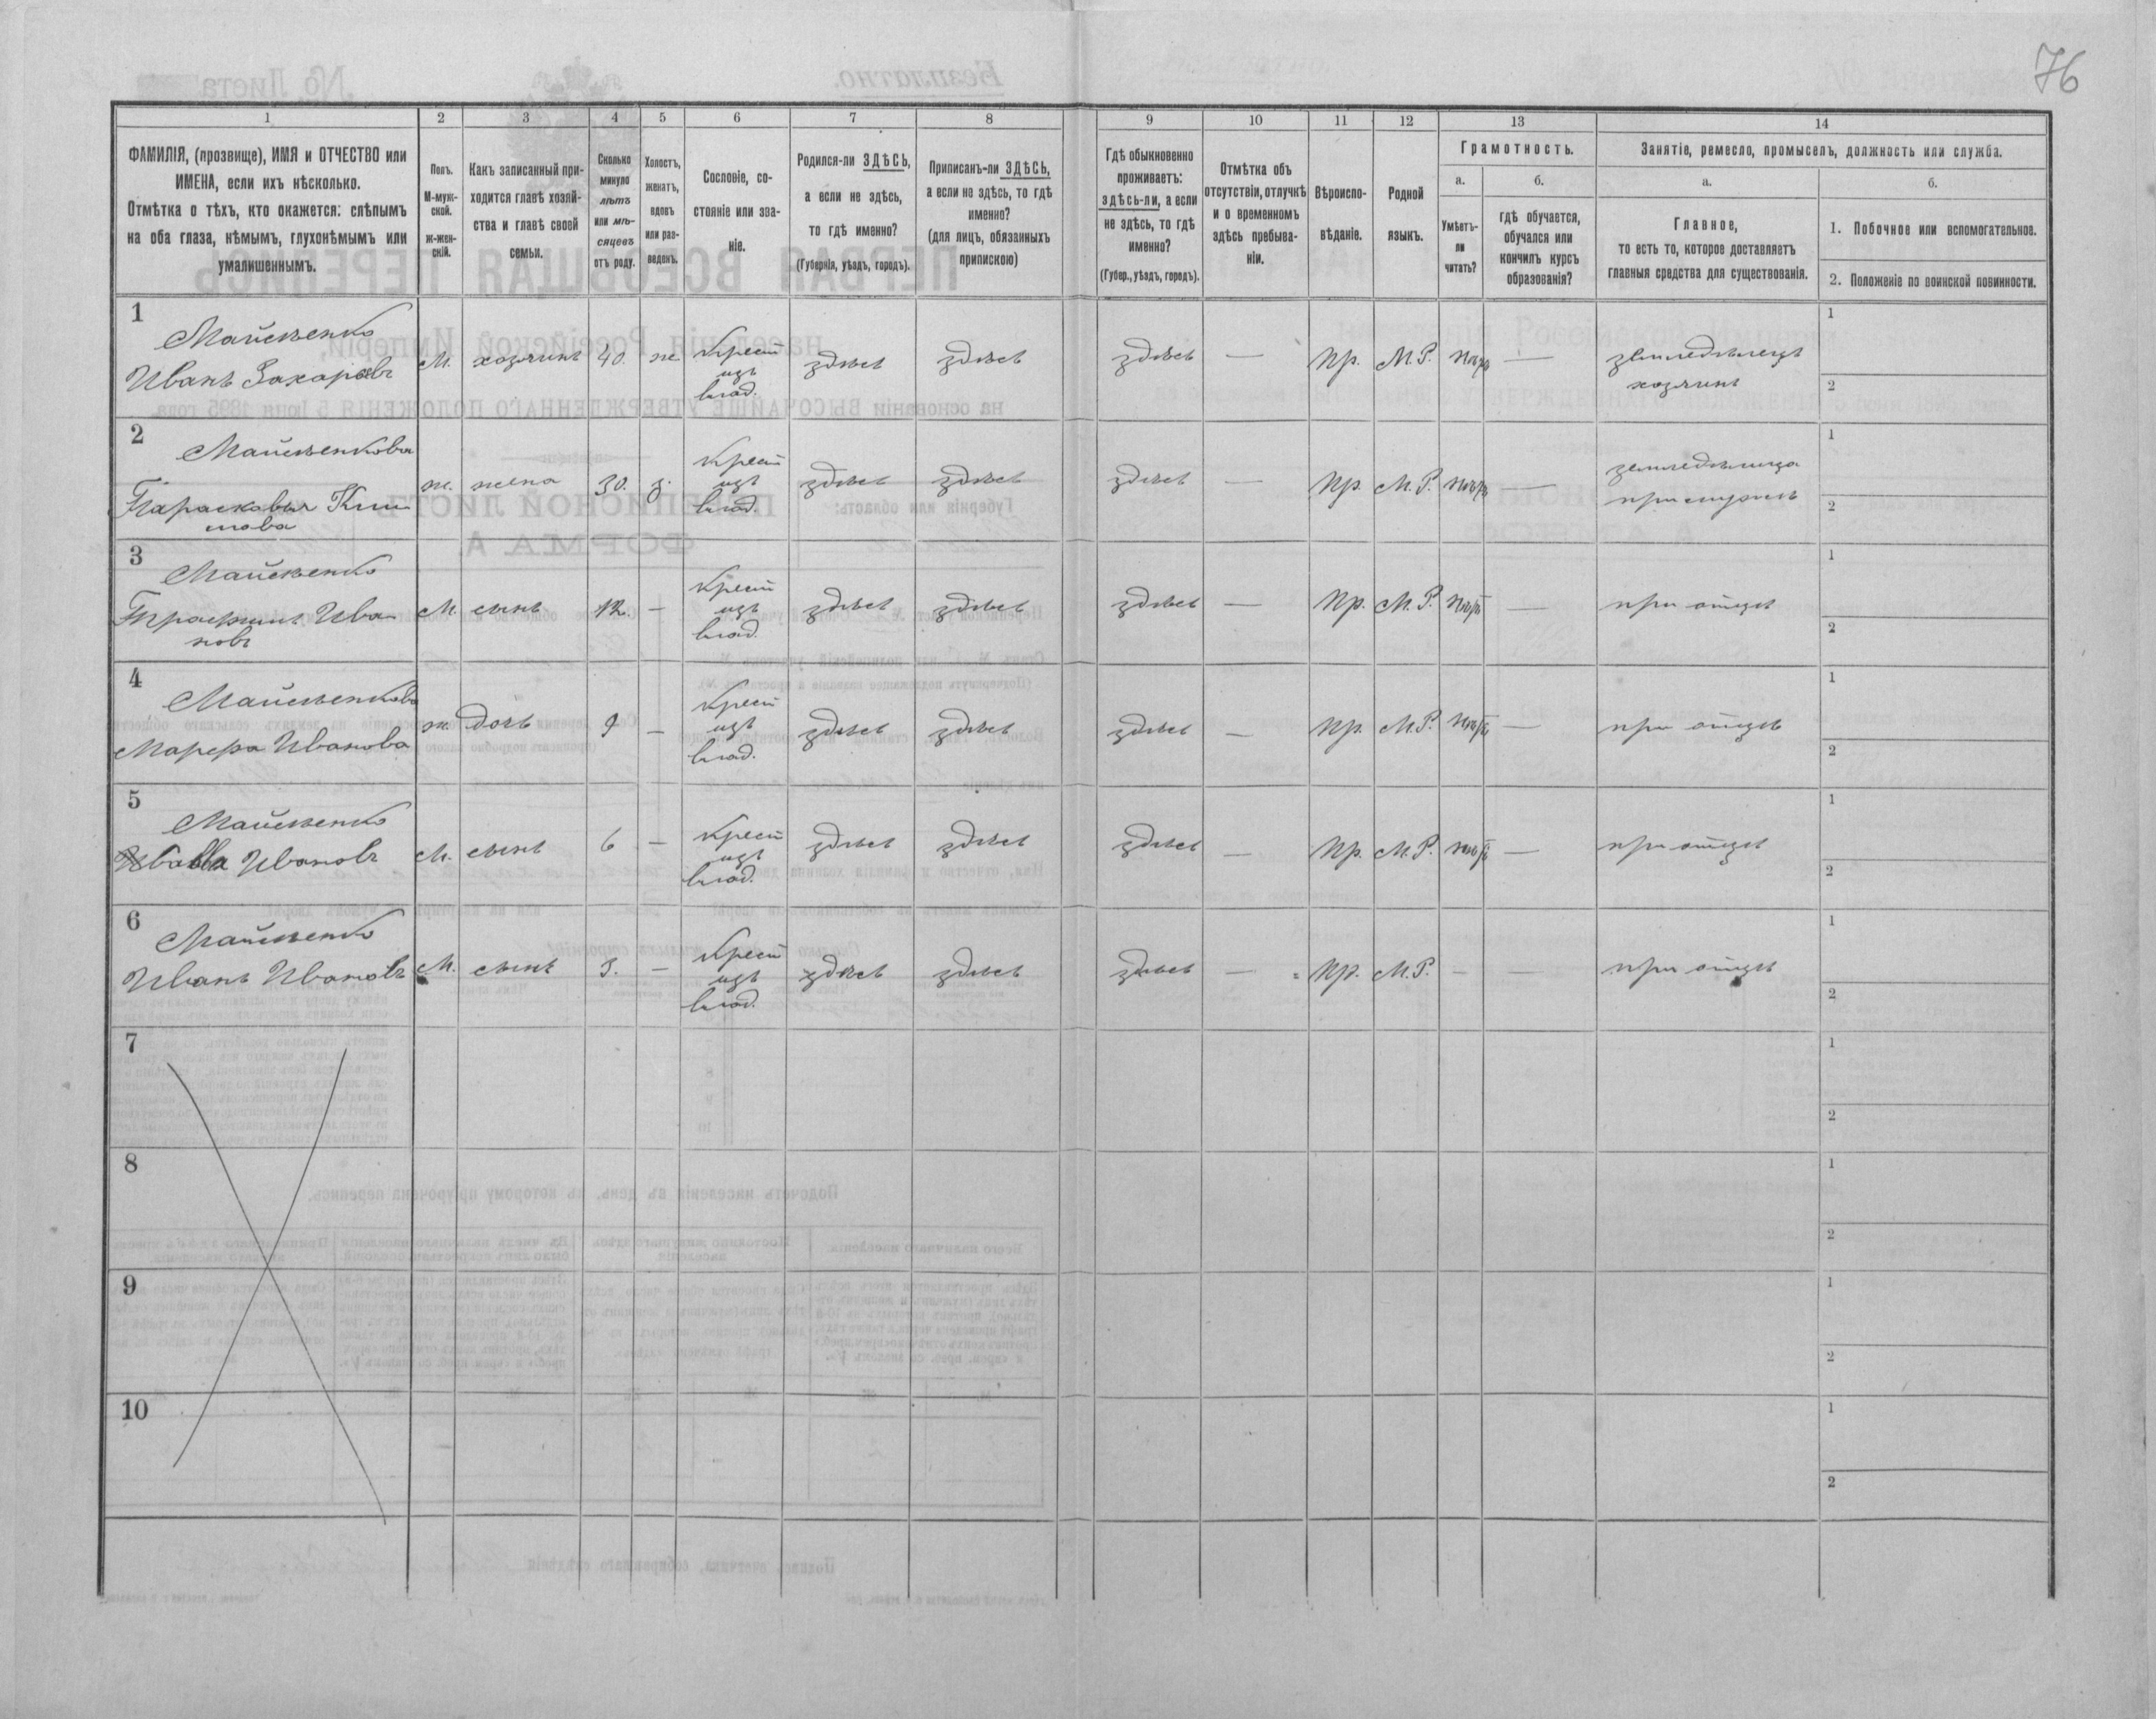 76
1
2
3
4
5
6
7
8
9
10
11
12
13
14
ФАМИЛІЯ, (прозвище), ИМЯ и ОТЧЕСТВО или
ИМЕНА, если ихъ нѣсколько.
Отмѣтка о тѣхъ, кто окажется: слѣпымъ
на оба глаза, нѣмымъ, глухонѣмымъ или
умалишеннымъ.
Полъ.
М-муж-
ской.
Ж-жен-
скій.
Какъ записанный при-
ходится главѣ хозяй-
ства и главѣ своей
семьи.
Сколько
минуло
лѣтъ
или мѣ-
сяцевъ
отъ роду.
Холостъ,
женатъ,
вдовъ
или раз-
веденъ.
Сословіе, со-
стояніе или зва-
ніе.
Родился-ли ЗДѢСЬ,
а если не здѣсь,
то гдѣ именно?
(Губернія, уѣздъ, городъ).
Приписанъ-ли ЗДѢСЬ,
а если не здѣсь, то гдѣ
именно?
(для лицъ, обязанныхъ
припискою)
Гдѣ обыкновенно
проживаетъ:
здѣсь-ли, а если
не здѣсь, то гдѣ
именно?
(Губер., уѣздъ, городъ).
Отмѣтка объ
отсутствіи, отлучкѣ
и о временномъ
здѣсь пребыва-
ніи.
Вѣроиспо-
вѣданіе.
Родной
языкъ.
Грамотность.
а.
Умѣетъ-
ли
читать?
б.
гдѣ обучается,
обучался или
кончилъ курсъ
образованія?
Занятіе, ремесло, промыселъ, должность или служба.
а.
Главное,
то есть то, которое доставляетъ
главныя средства для существованія.
б.
1. Побочное или вспомогательное.
2. Положеніе по воинской повинности.
1
Иванъ
М. хозяинъ 40. же Крест изъ влад. здѣсь здѣсь здѣсь — Пр. М.Р. — земледѣлецъ
хозяинъ
1
2
2
Парасковья
ж. жена 30. з. Крест изъ влад. здѣсь здѣсь здѣсь — Пр. М.Р. —
1
2
3
М. сынъ 12. — Крест изъ влад. здѣсь здѣсь здѣсь — Пр. М.Р. — при отцѣ
1
2
4
Марефа Иванова
ж. дочь 9 — Крест изъ влад. здѣсь здѣсь здѣсь — Пр. М.Р. — при отцѣ
1
2
5
Ивановъ
М. сынъ 6 — Крест изъ влад. здѣсь здѣсь здѣсь — Пр. М.Р. — при отцѣ
1
2
6
Иванъ Ивановъ
М. сынъ 3. — Крест изъ влад. здѣсь здѣсь здѣсь — Пр. М.Р. — при отцѣ
1
2
7
1
2
8
1
2
9
1
2
10
1
2